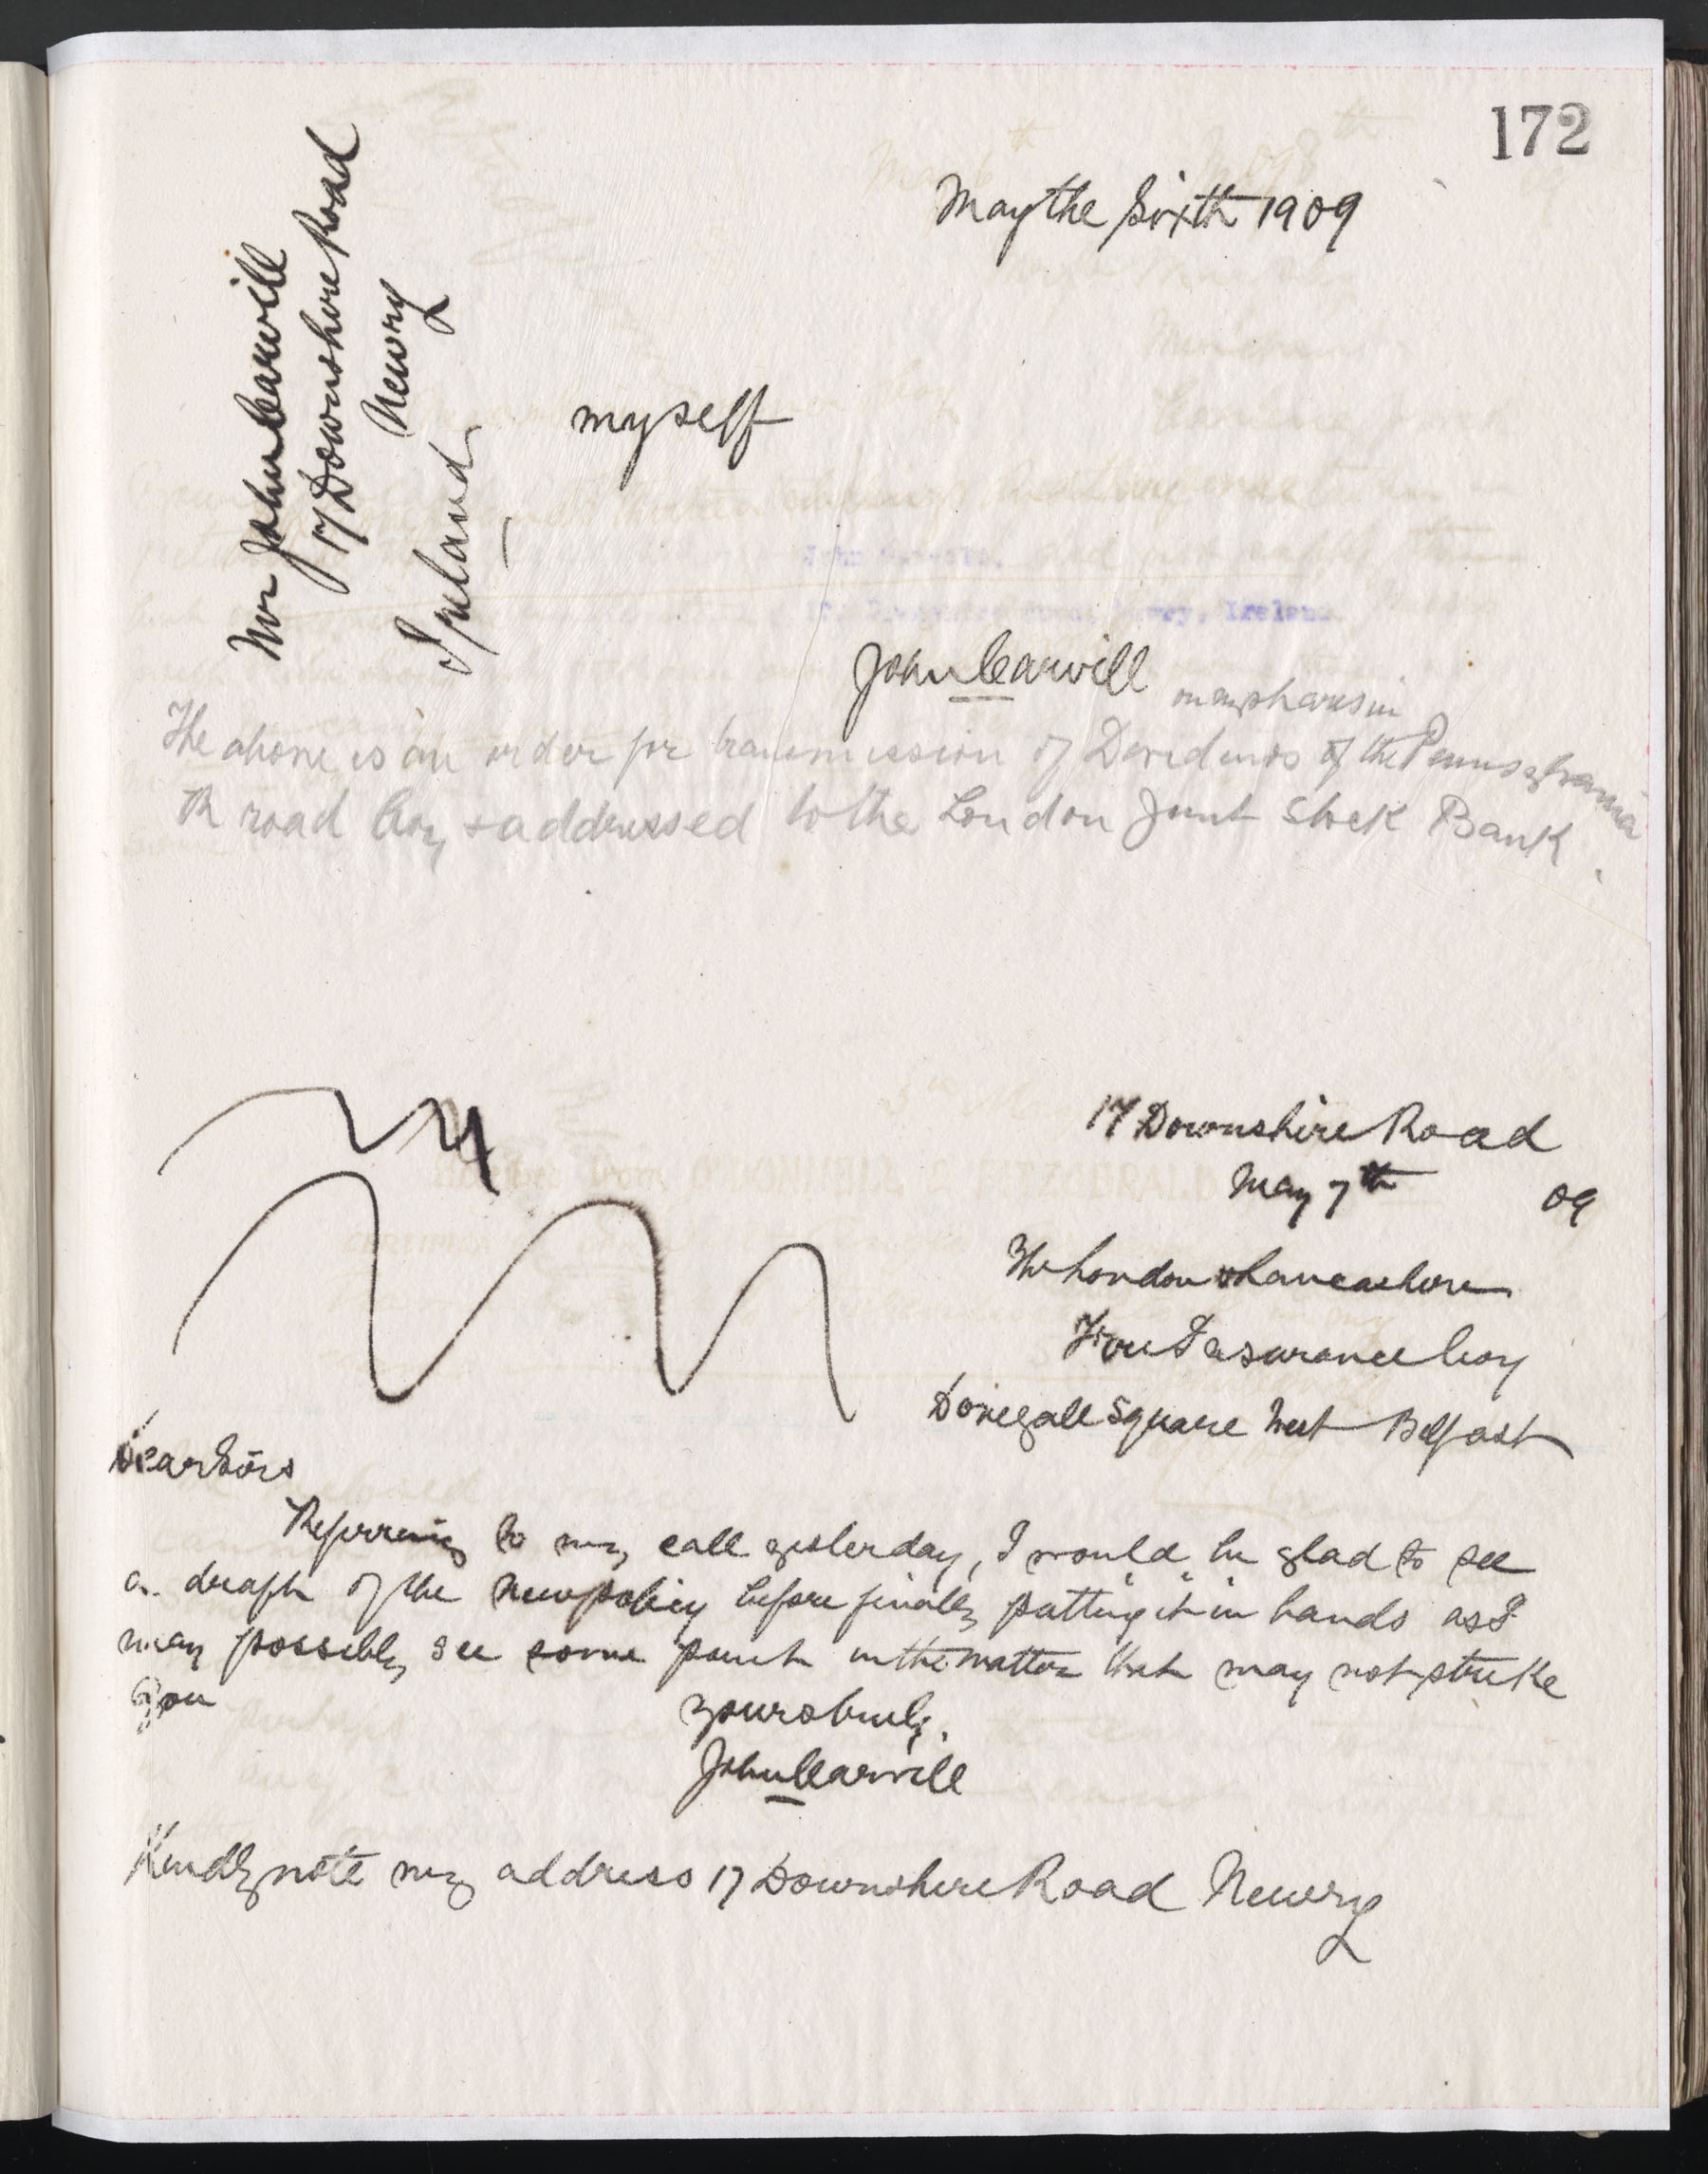 172
May the Sixth 1909
Mr John Carvill
17 Downshire Road
Newry
Ireland
myself
John Carvill
on my shares in
The above is an order for transmission of Dividends of the Pennsylvania
R road Coy, & addressed to the London Joint Stock Bank
17 Downshire Road
May 7th 09
The London & Lancashire
Fire Insurance Coy
Donegall Square West Belfast
Dear Sirs
Referring to my call yesterday, I would be glad to see
a draft of the new policy before finally putting it in hands as I
may possibly see some point in the matter that may not strike
you
yours truly.
John Carvill
Kindly note my address 17 Downshire Road Newry